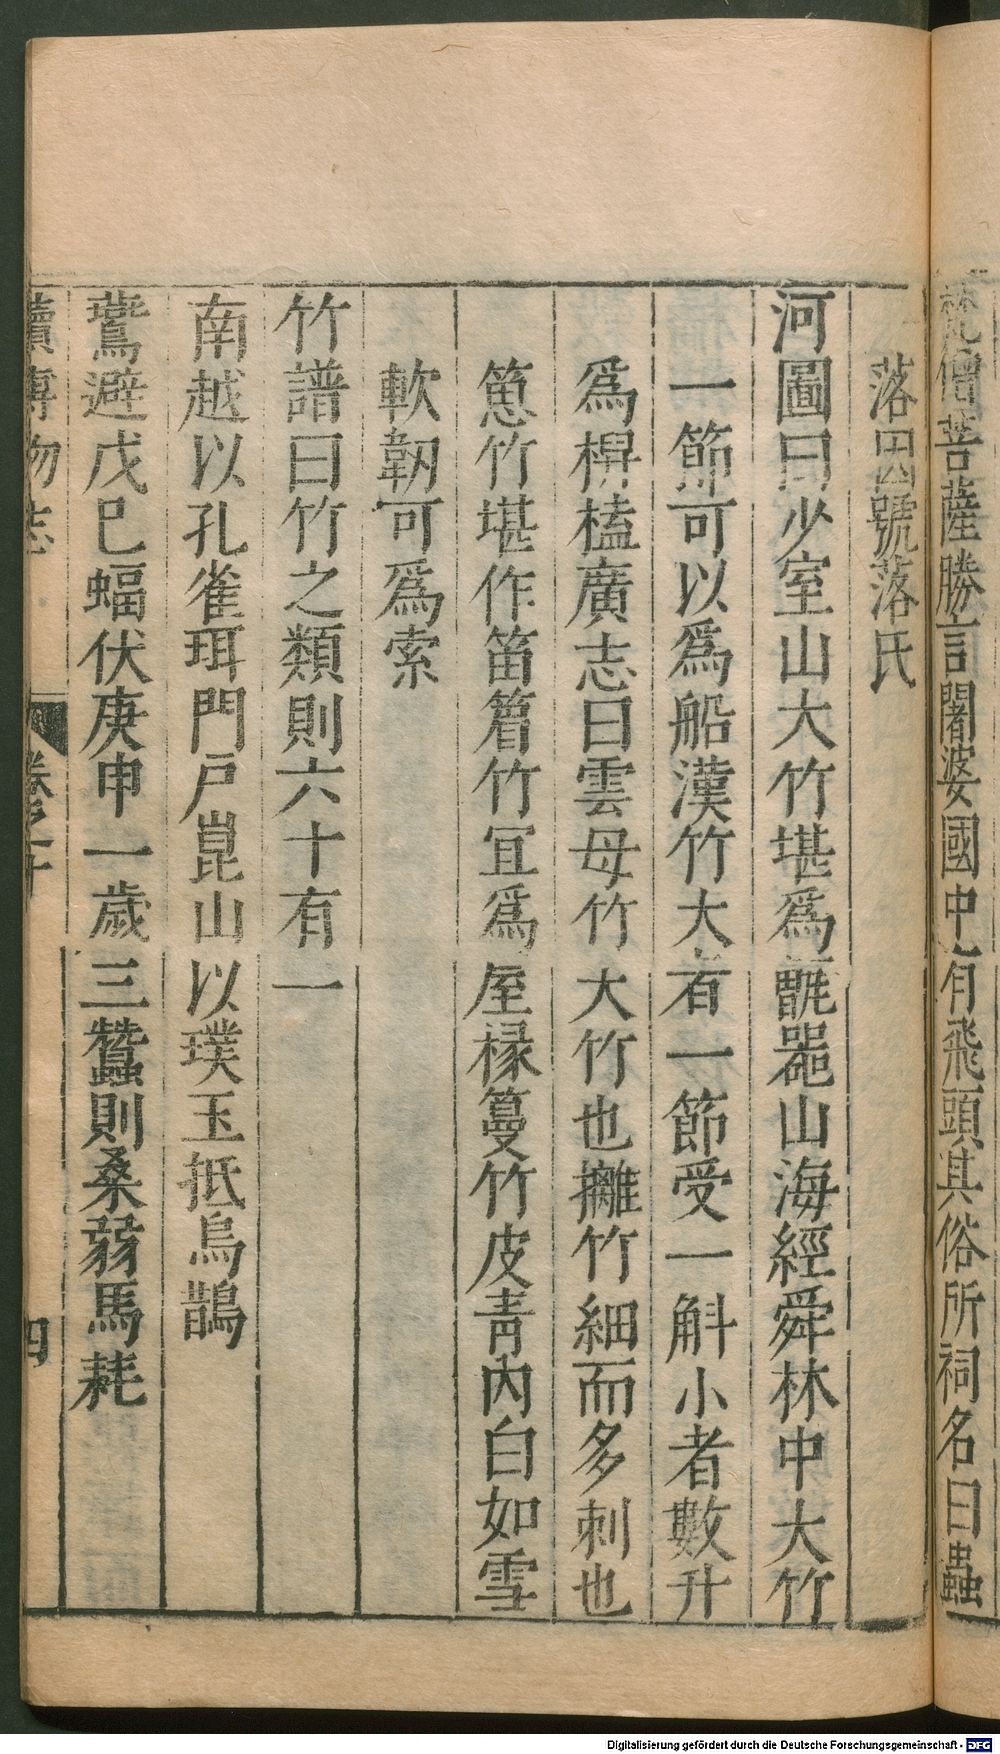 梵僧菩薩勝言闍婆國中有飛頭其俗所祠名曰蟲
落因號落氏
河圖曰少室山大竹堪爲甑器山海經舜林中大竹
一節可以爲船漢竹大者一節受一斛小者數升
爲椑榼廣志曰雲母竹大竹也䉬竹細而多刺也
箟竹堪作笛簹竹宜爲屋椽䈵竹皮青內白如雪
軟韌可爲索
竹譜曰竹之類則六十有一
南越以孔雀珥門戶崑山以璞玉抵烏鵲
鷰避戊巳蝠伏庚申一歲三蠶則桑弱馬耗
續博物志 卷之十 四
Digitalisierung gefördert durch die Deutsche Forschungsgemeinschaft - DFG